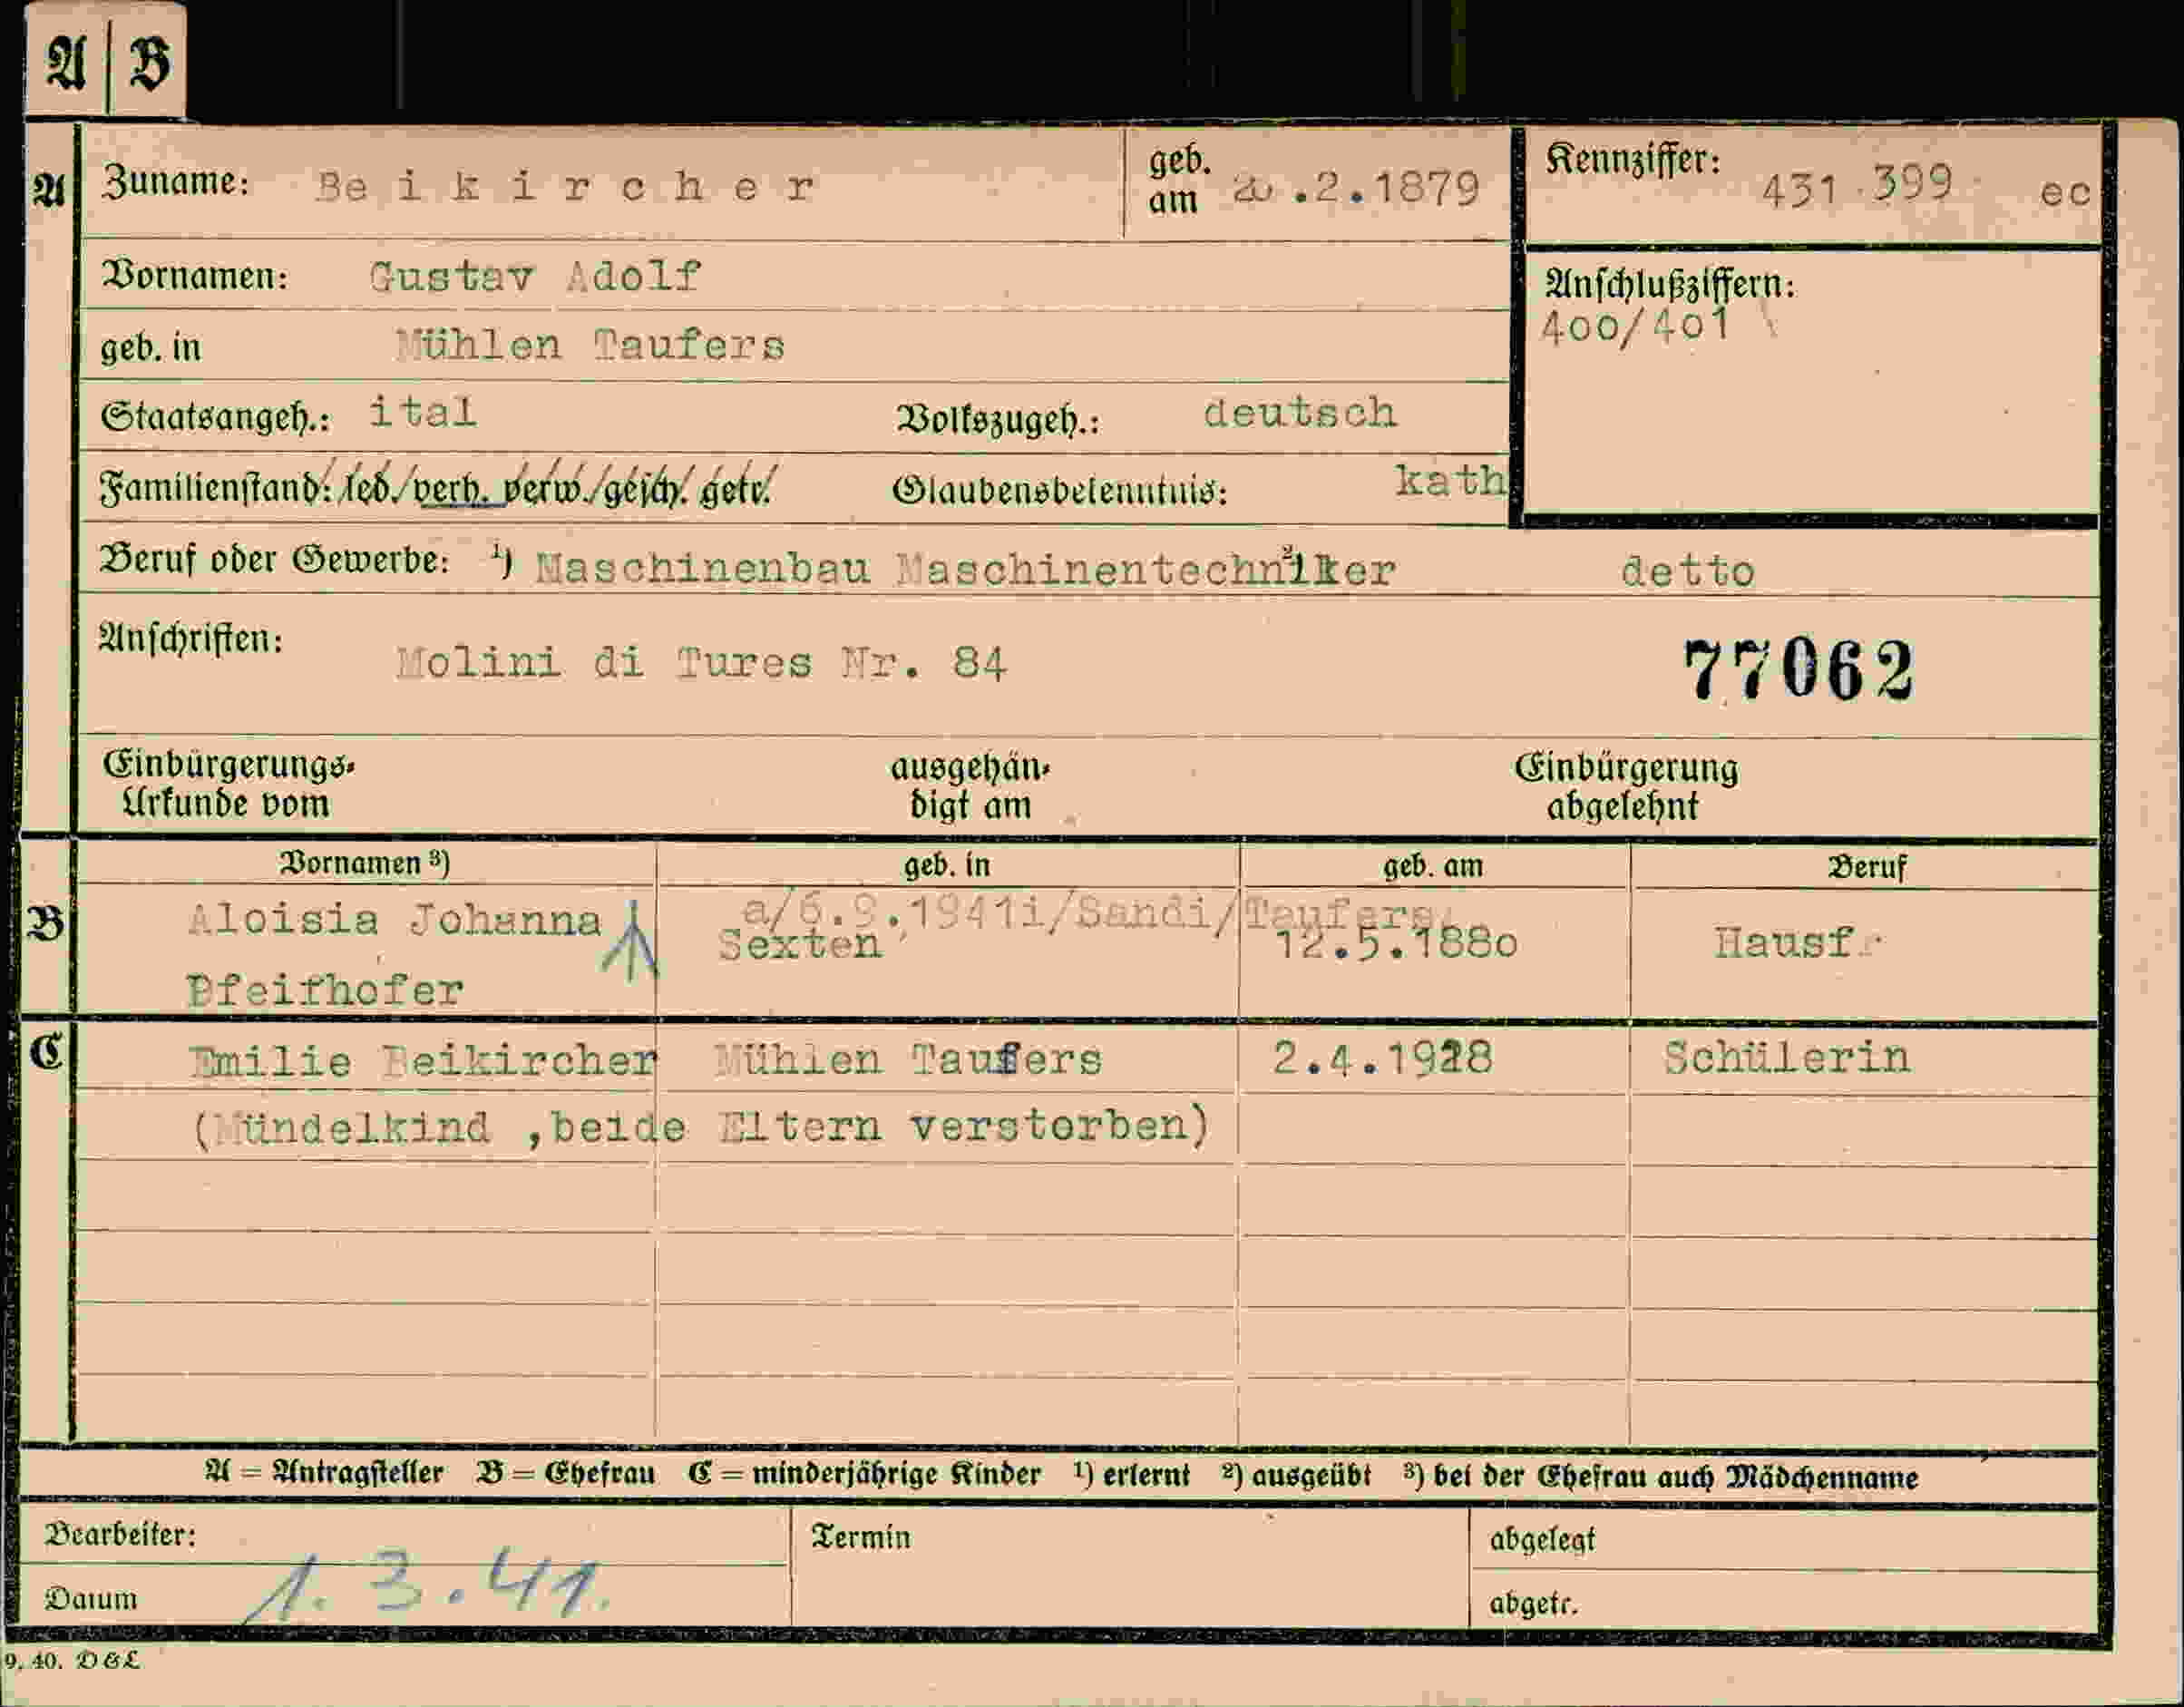 A | B
A Zuname: Beikircher geb. am .2.1879 Kennziffer: 431 399 ec
Vornamen: Gustav Adolf Anschlußziffern:
400/401
geb. in Mühlen Taufers
Staatsangeh.: ital Volkszugeh.: deutsch
Familienstand: led./verh. verw./gesch. getr. Glaubensbekenntnis: kath
Beruf oder Gewerbe: ¹) Maschinenbau Maschinentechniker ²) detto
Anschriften: Molini di Tures Nr. 84 77062
Einbürgerungs- ausgehän- Einbürgerung
Urkunde vom digt am abgelehnt
Vornamen ³) geb. in geb. am Beruf
a/6.9.1941i/Sandi/Taufers
B Aloisia Johanna Sexten 12.5.1880 Hausfr
Pfeifhofer
C Emilie Beikircher Mühlen Taufers 2.4.1928 Schülerin
(Mündelkind ,beide Eltern verstorben)
A = Antragsteller B = Ehefrau C = minderjährige Kinder ¹) erlernt ²) ausgeübt ³) bei der Ehefrau auch Mädchenname
Bearbeiter: Termin abgelegt
Datum 1.3.41. abgetr.
9. 40. D&L